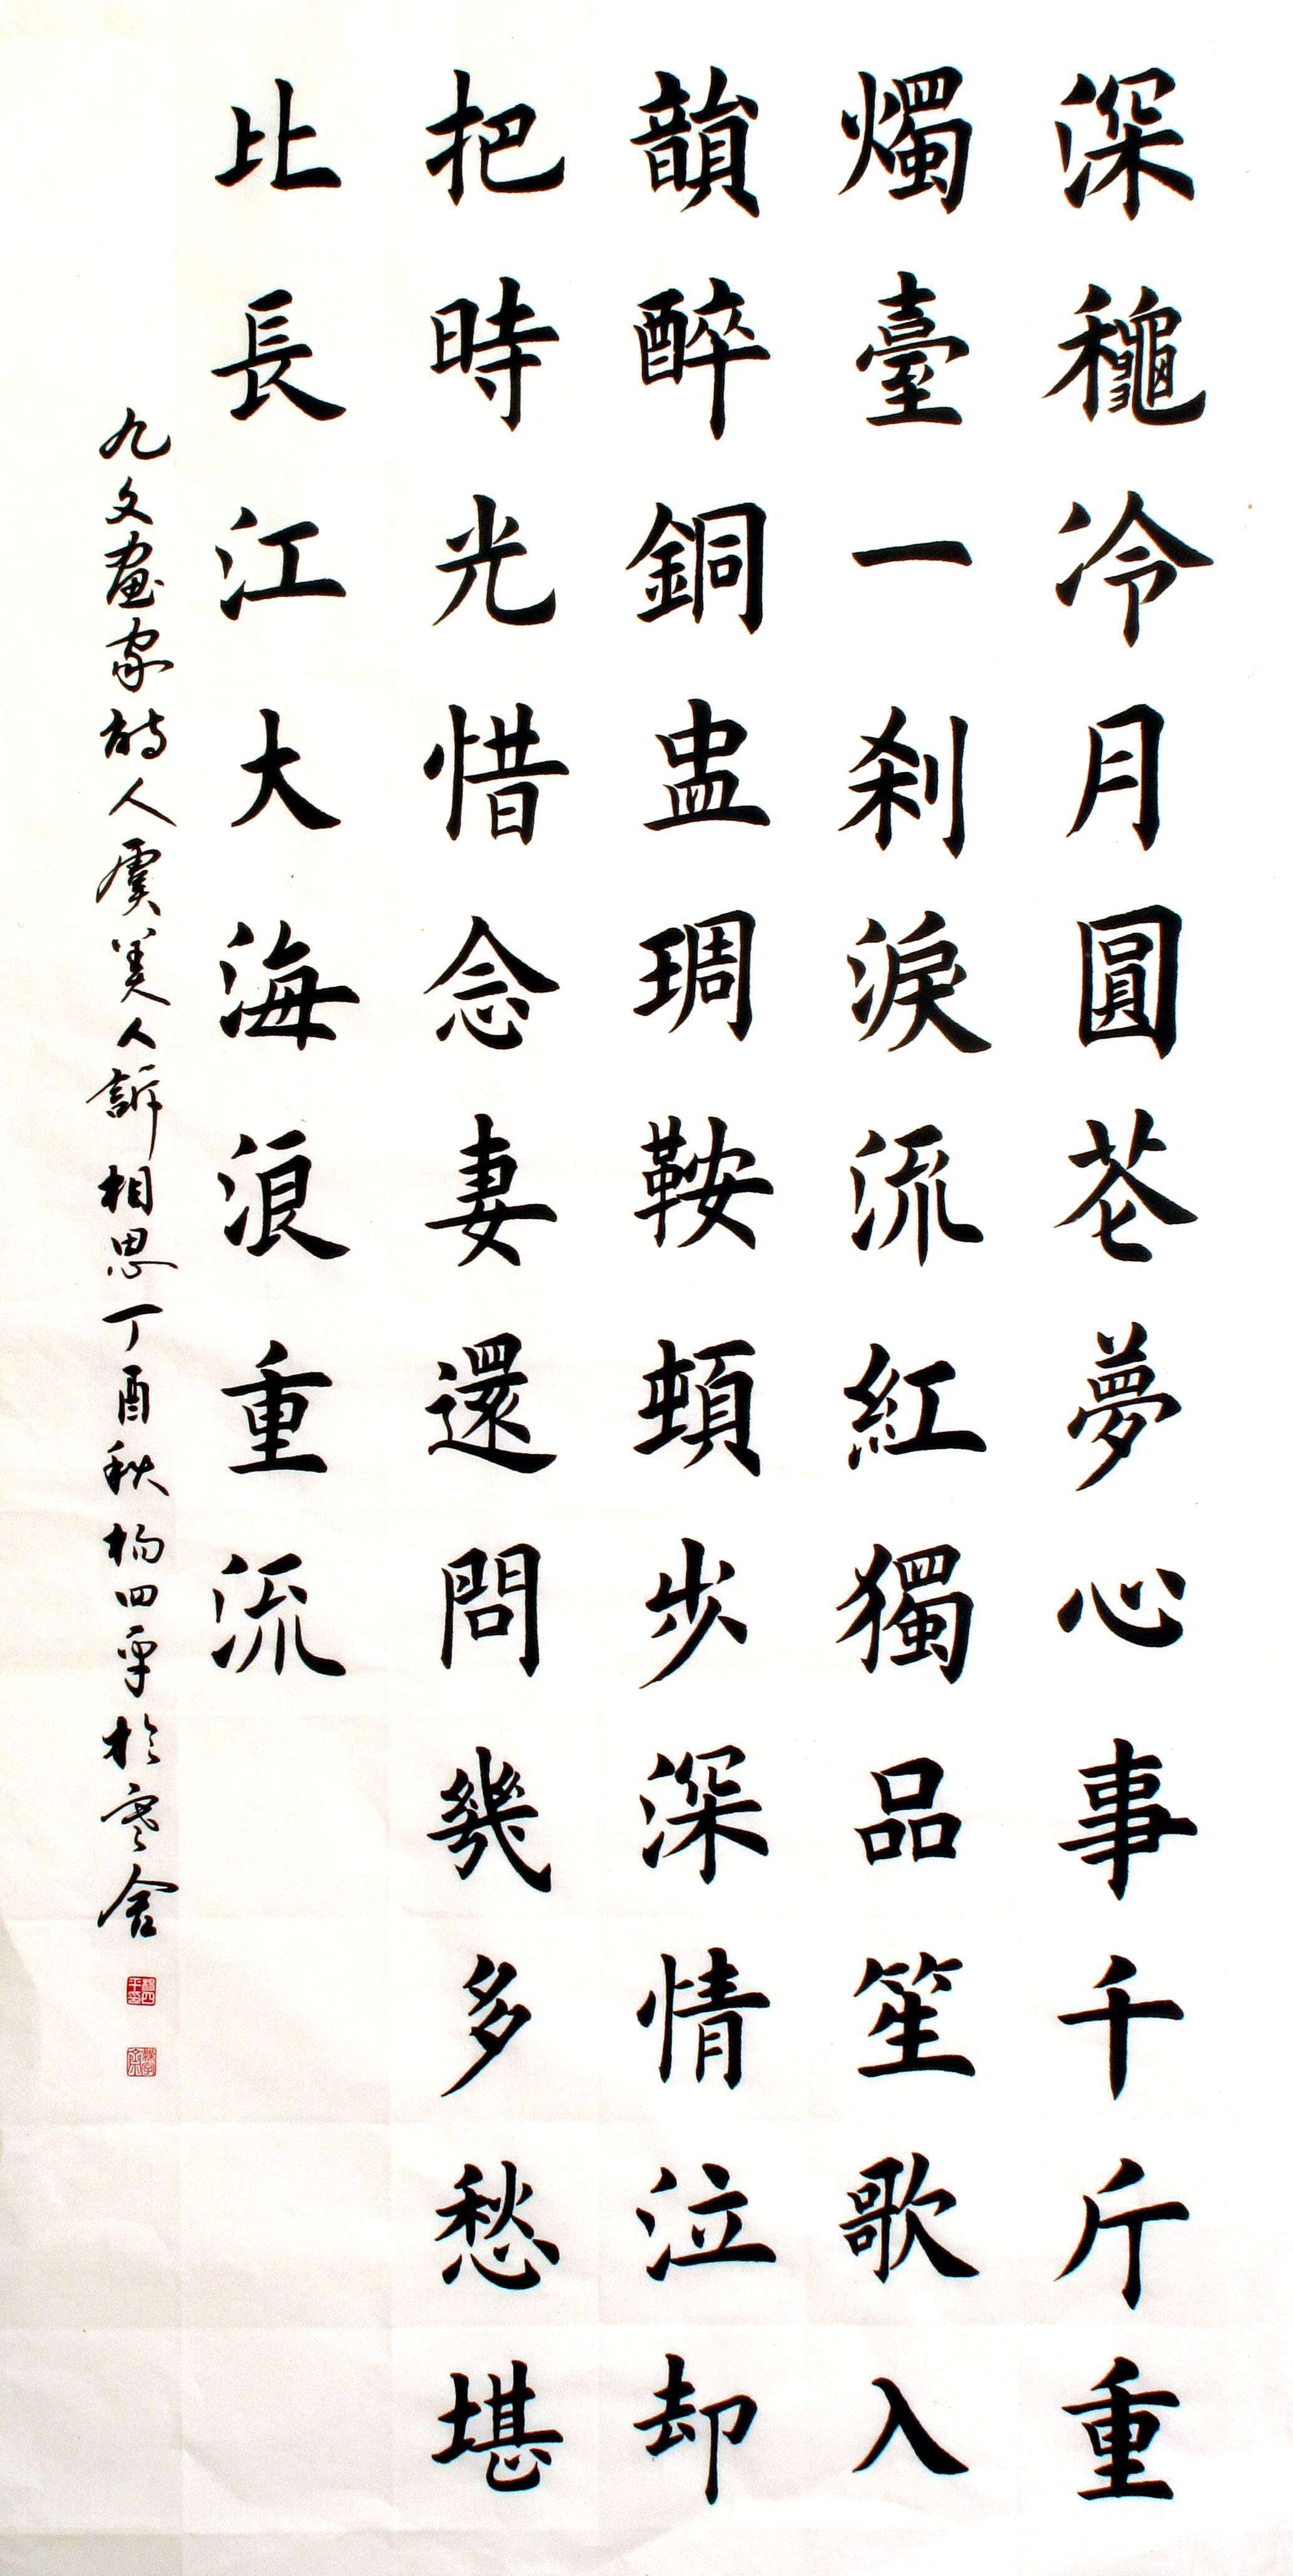 深龝冷月圓苍夢心事千斤重
燭臺一刹淚流紅獨品笙歌入
韻醉銅盅琱鞍頓步深情泣却
把時光惜念妻還問幾多愁堪
比長江大海浪重流
九文畫家的人虞美人訴相思丁酉秋楊四平於寒舍